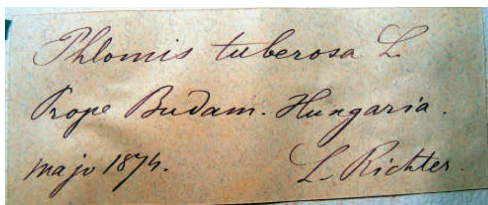 Phlomis tuberosa L.
Prope Budam. Hungaria.
majo 1874. L. Richter.